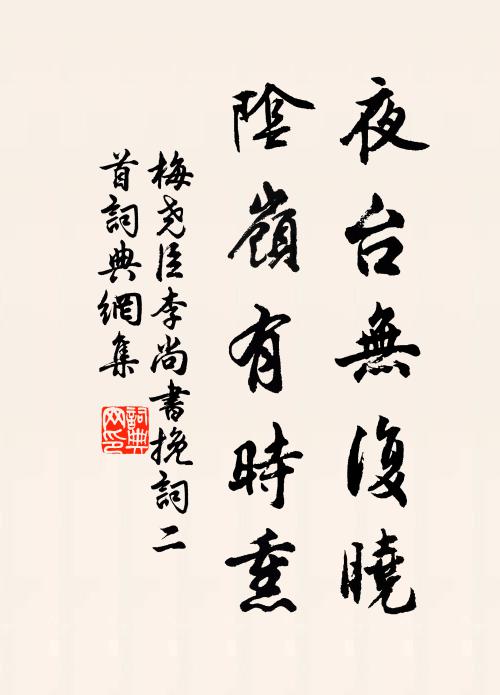 夜台無復曉
陰嶺有時熏
梅尧臣李尚書挽詞二
首詞典網集
詞典网印